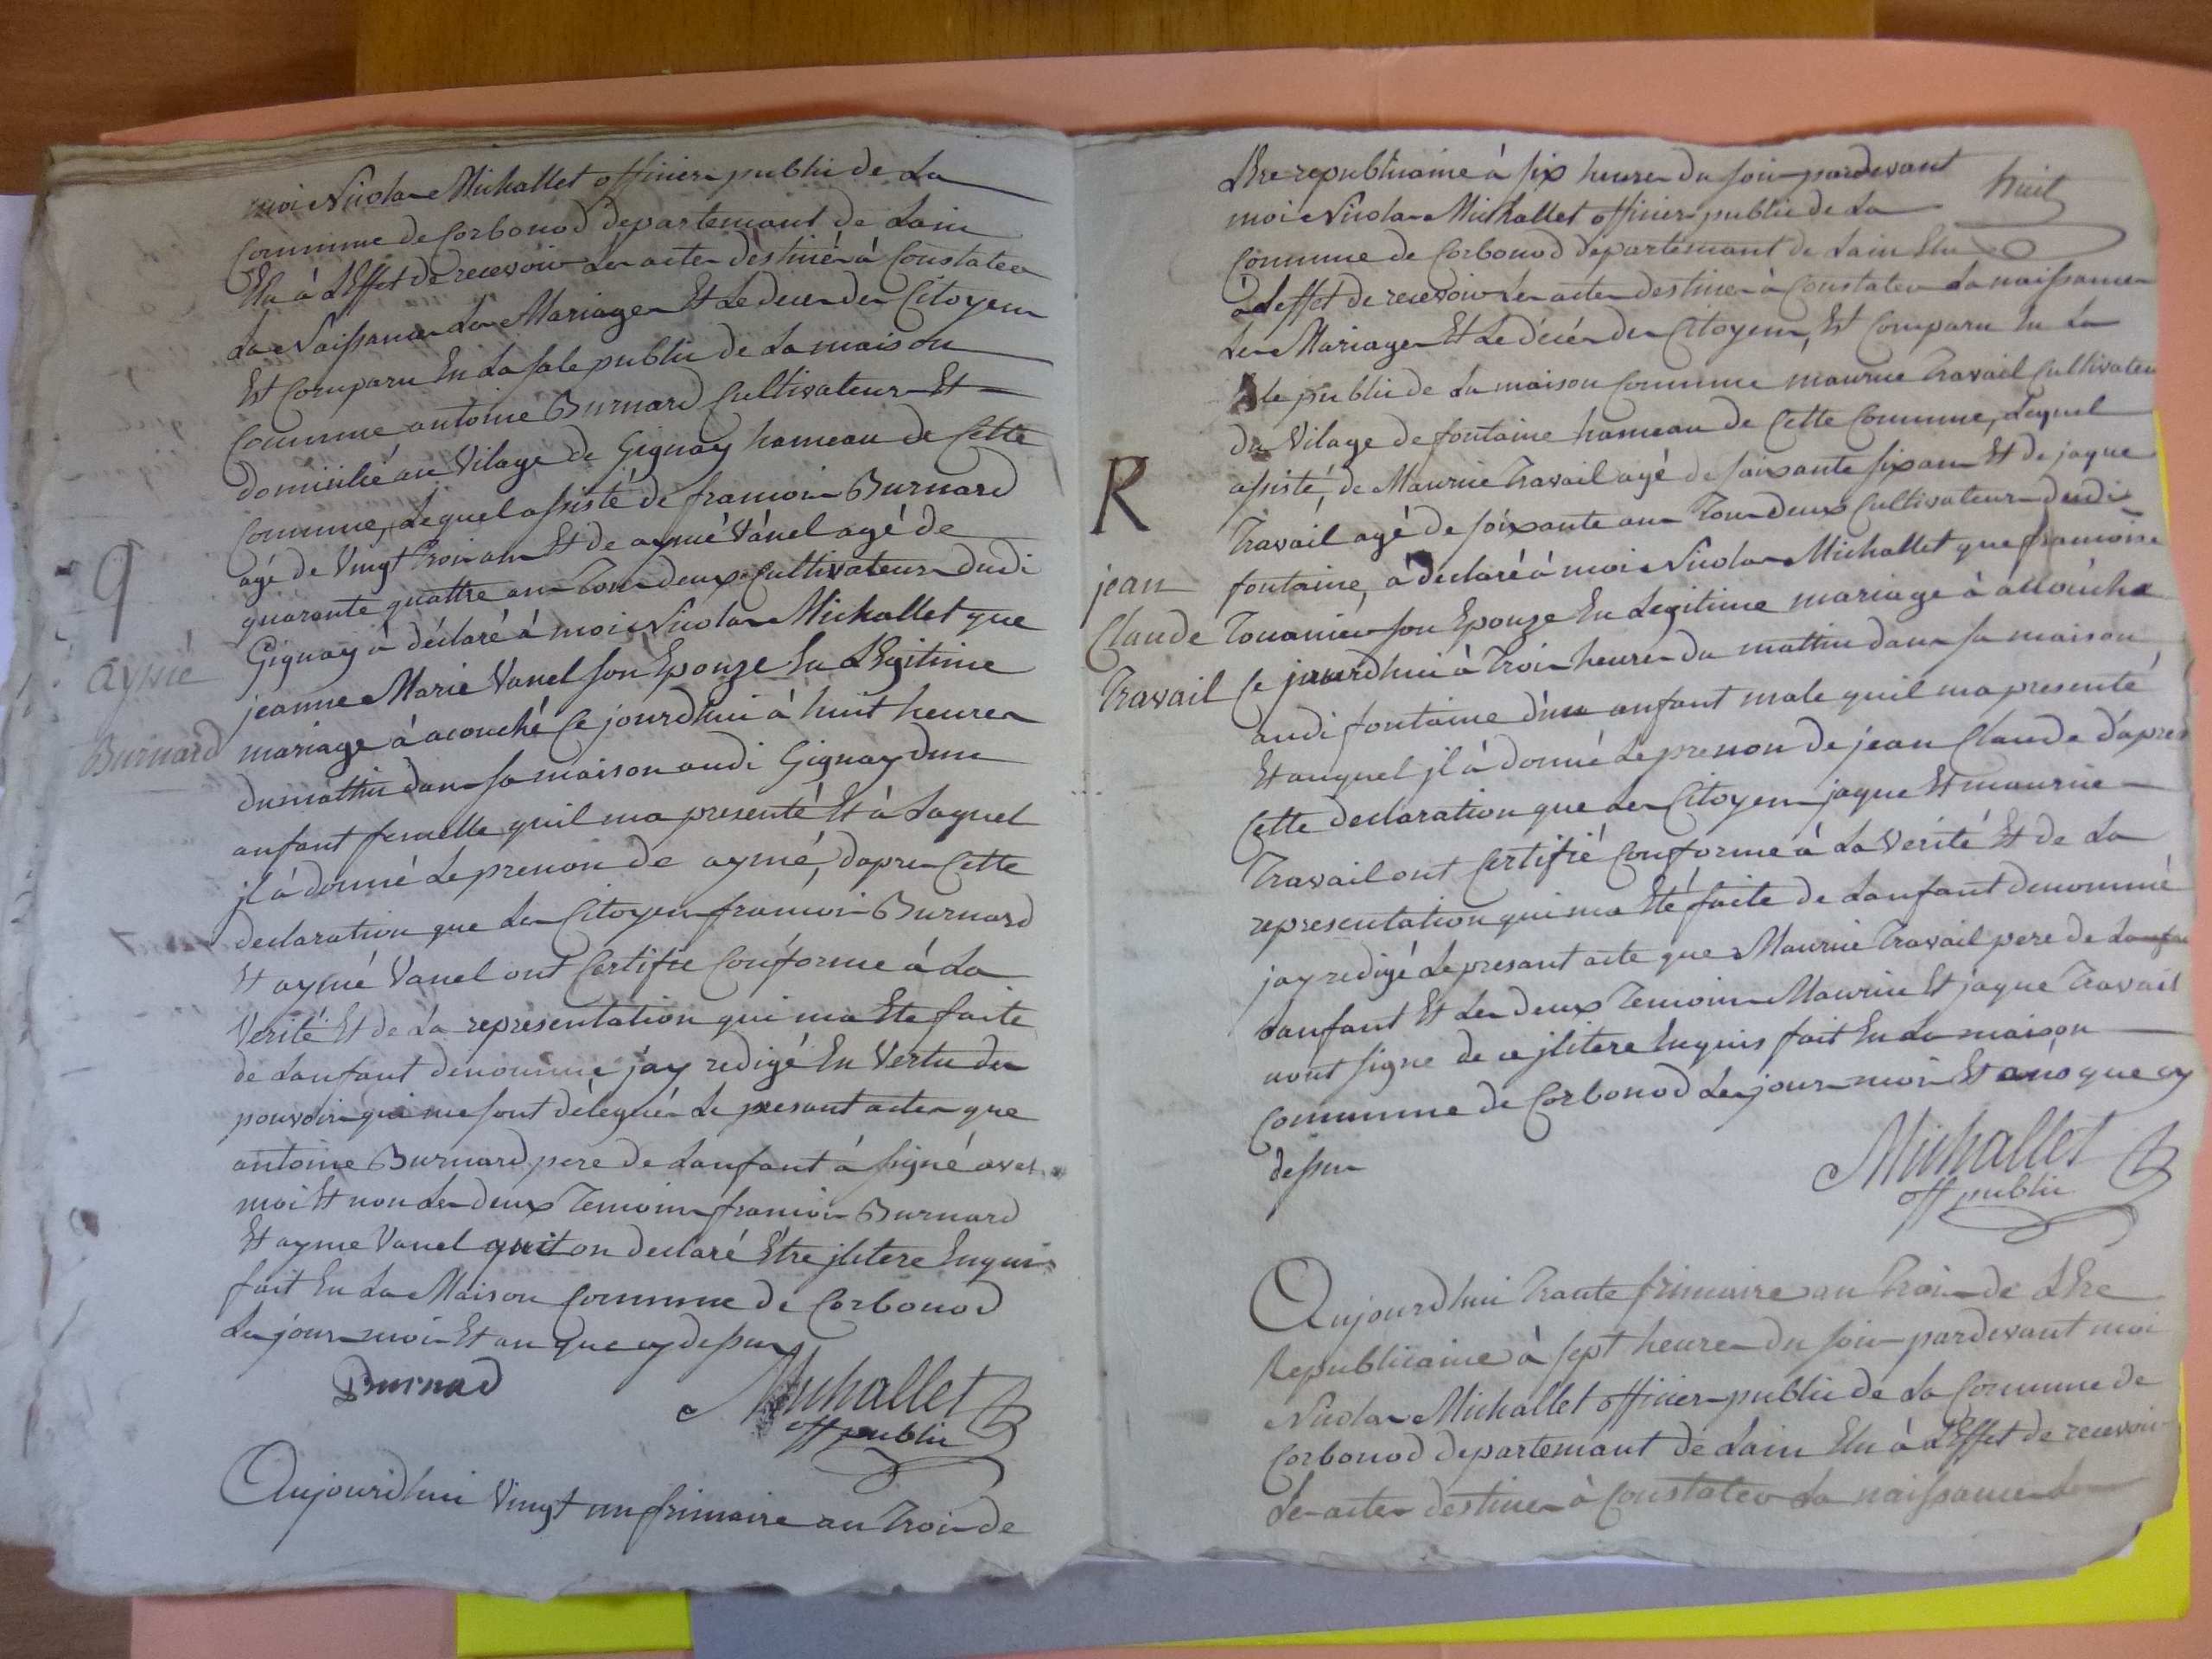 moi Nicolas Michallet officier public de La
Commune de Corbonod departemant de Lain
Elu à L'Effet de recevoir Les actes destinés à Constater
La Naissance Les Mariages Et Le deces des Citoyens
Est Comparu En La sale public de La maison
Commune antoine Burnard Cultivateur Et
domicilié au Vilage de Gignay hameau de Cette
Commune, Lequel assisté de francois Burnard
agé de Vingt trois ans Et de aymé Vanel agé de
quarante quattre ans Tous deux Cultivateurs dudi
Gignay à déclaré à moi Nicolas Michallet que
jeanne Marie Vanel son Epouze En LEgitime
mariage à acouché Ce jourdhui à huit heures
du mattin dans sa maison audi Gignay dun
anfant femelle quil ma presenté Et à Laquel
jl à donné Le prenon de aymé, dapres Cette
declaration que Les Citoyens francois Burnard
Et aymé Vanel ont Certifie Conforme à La
Verité Et de La representation qui ma Ete faite
de Lanfant denommé j'ay redigé En Vertu des
pouvoirs qui me sont délegués Le presant actes que
antoine Burnard pere de Lanfant à signé avec
moi Et non Les deux Temoins francois Burnard
Et ayme Vanel quit on declaré Etre jlitere Enquis
fait En La Maison Commune de Corbonod
Les jour mois Et an que cy dessus
Burnad
Michallet
off public
Aujourdhui Vingt un frimaire an Trois de
9
aymé
Burnard
LEre republicaine à six heures du soir pardevant
huit
moi Nicolas Michallet officier public de La
Commune de Corbonod departemant de Lain Elu
à Leffet de recevoir Les actes destines à Constater La naissances
Les Mariages Et Le décés des Citoyens, Est Comparu En La
sale public de La maison Commune maurice Travail Cultivateur
du Vilage de fontaine hameau de Cette Commune, Lequel
assisté, de Maurice Travail agé de soixante six ans Et de jaque
Travail agé de soixante ans Tous deux Cultivateurs dudi
fontaine, à declaré à moi Nicolas Michallet que francoise
son Epouze En Legitime mariage à acouché
Ce jourdhui à Trois heures du mattin dans sa maison
audi fontaine d'un anfant male quil ma presenté
Et auquel jl à donné Le prenon de jean Claude d'apres
Cette declaration que Les Citoyens jaque Et maurice
Travail ont Certifié Conforme à La Verité Et de La
representation qui ma Eté faite de Lanfant denommé
jay redigé Le presant acte que Maurice Travail pere de
Lanfant Et Les deux Temoins Maurice Et jaque Travail
nont signe de ce jlitere Enquis fait En La maison
Commune de Corbonod Les jour mois Et que cy
dessus
R
jean
Claude
Travail
Michallet
off public
Aujourdhui Trante frimaire an Trois de LEre
Republicaine à sept heures du soir pardevant moi
Nicolas Michallet officier public de La Commune de
Corbonod departemant de Lain Elu à L'Effet de recevoir
Les actes destines à Constater La naissances Les